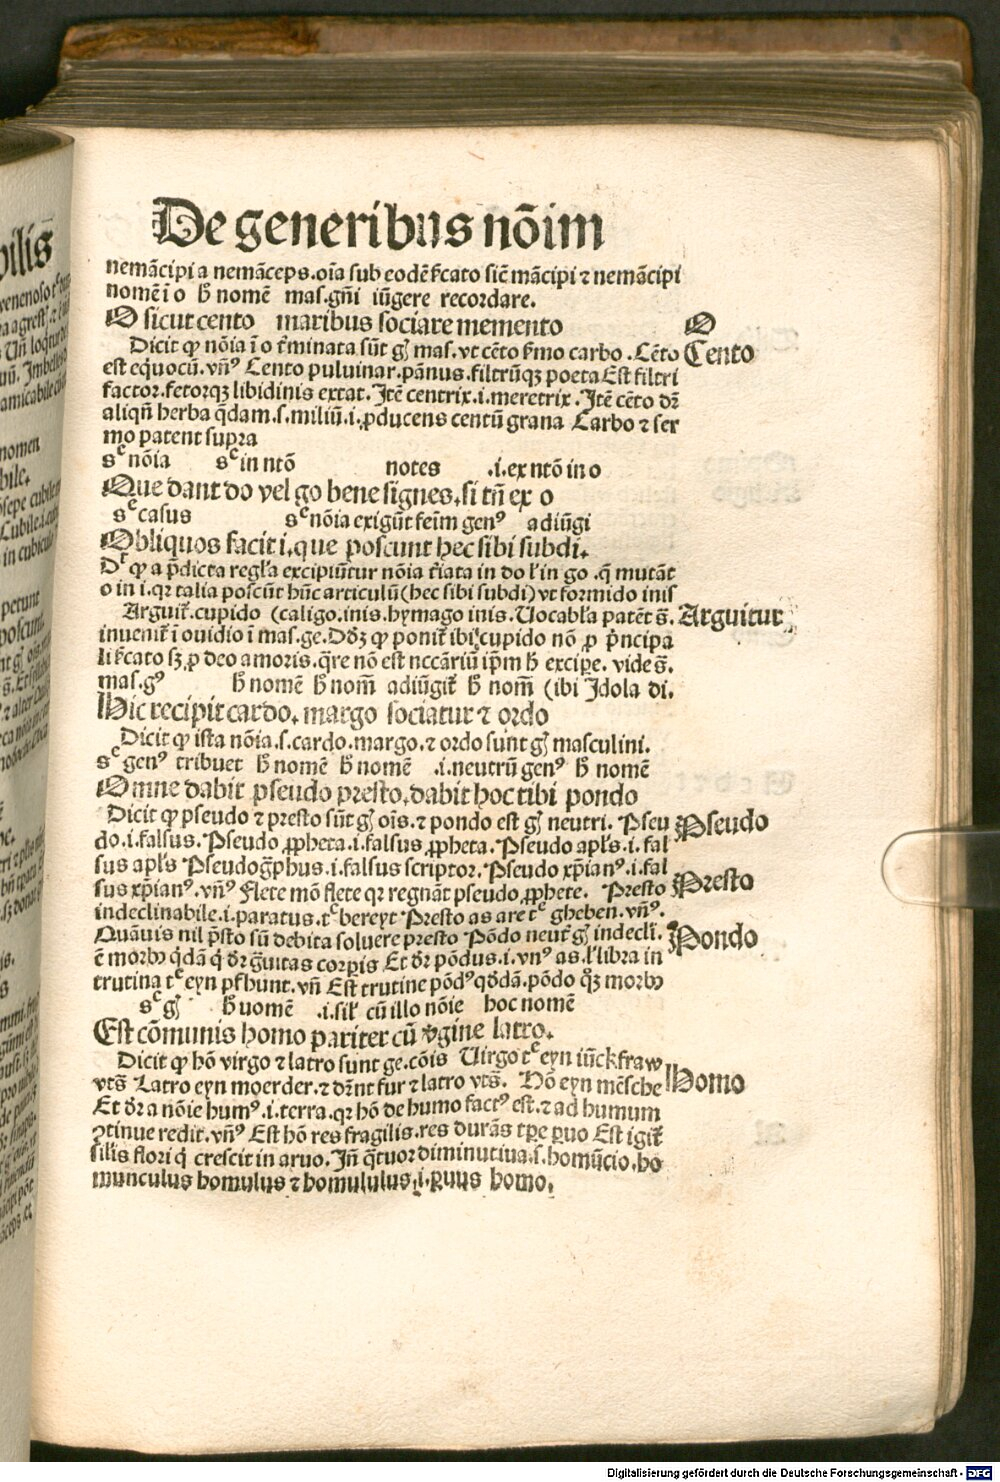 De generibus nōim
nemācipi a nemāceps. oīa sub eodē ſcato sicē mācipi ⁊ nemācipi
nomē ī o hͦ nomē mas. gn̄i iūgere recordare.
O sicut cento maribus sociare memento
O
Dicit ꝙ nōia ī o t̄minata sūt gͥs mas. vt cēto ẜmo carbo. Cēto
Cento
est eq̄uocū. vn̄ꝰ Cento puluinar. pānus. filtrūqꝫ poeta Est filtri
factor. fetorqꝫ libidinis extat. Itē centrix .i. meretrix. Itē cēto dr̄
aliqn̄ herba q̄dam .s. miliū .i. ꝓducens centū grana Carbo ⁊ ser
mo patent supra
sᶜ nōia sᶜ in ntō notes .i. ex ntō in o
Que dant do vel go bene signes. si tn̄ ex o
sᶜ casus sᶜ nōia exigūt feīm genꝰ adiūgi
Obliquos facit i. que poscunt hec sibi subdi.
Dᶜ ꝙ a p̄dicta regl̓a excipiūtur nōia t̄iata in do l̓ in go. q̄ mutāt
o in i. qr talia poscūt hūc articulū (hec sibi subdi) vt formido inis
Arguit̄. cupido (caligo. inis. hymago inis. Uocabl̓a patēt s̄.
Arguitur
inuenit̄ ī ouidio ī mas. ge. Dōꝫ ꝙ ponit̄ ibi cupido nō ꝓ p̄ncipa
li ſcato sꝫ ꝓ deo amoris. q̄re nō est nccāriū ip̄m hͦ excipe. vide s̄.
mas. gꝰ hͦ nomē hͦ nom̄ adiūgit̄ hͦ nom̄ (ibi Idola di.
Hic recipit cardo. margo sociatur ⁊ ordo
Dicit ꝙ ista nōia .s. cardo. margo. ⁊ ordo sunt gͥs masculini.
sᶜ genꝰ tribuet hͦ nomē hͦ nomē .i. neutrū genꝰ hͦ nomē
Omne dabit pseudo presto. dabit hoc tibi pondo
Dicit ꝙ pseudo ⁊ presto sūt gͥs oīs. ⁊ pondo est gͥs neutri. Pseu
Pseudo
do .i. falsus. Pseudo ꝓpheta .i. falsus ꝓpheta. Pseudo apl̓s .i. fal
sus apl̓s Pseudogͣphus .i. falsus scriptor. Pseudo xp̄ianꝰ .i. fal
sus xp̄ianꝰ. vn̄ꝰ Flete mō flete qr regnāt pseudo ꝓphete. Presto
Presto
indeclinabile .i. paratus. tᶜ bereyt Presto as are tᶜ gheben. vn̄ꝰ.
Quāuis nil p̄sto sū debita soluere presto Pōdo neut̄ gͥs indecli.
Pondo
ē morbꝰ q̄dā q̄ dr̄ gͣuitas corpis Et dr̄ pōdus .i. vnꝰ as. l̓ libra in
trutina tᶜ eyn pfhunt. vn̄ Est trutine pōdꝰ qͦddā. pōdo qͦꝫ morbꝰ
sᶜ gͥs hͦ uomē .i. sil̓ cū illo nōie hoc nomē
Est cōmunis homo pariter cū v̓gine latro.
Dicit ꝙ hō virgo ⁊ latro sunt ge. cōis Uirgo tᶜ eyn iūckfraw
vts̄ Latro eyn moerder. ⁊ dr̄nt fur ⁊ latro vts̄. Hō eyn mēsche
Homo
Et dr̄ a nōie humꝰ .i. terra. qr hō de humo factꝰ est. ⁊ ad humum
ꝯtinue redit. vn̄ꝰ Est hō res fragilis. res durās tp̄e ꝑuo Est igit̄
silis flori q̄ crescit in aruo. In̄ q̄tuor diminutiua .s. homūcio. ho
munculus homulus ⁊ homululus .i. ꝑuus homo.
Digitalisierung gefördert durch die Deutsche Forschungsgemeinschaft - DFG